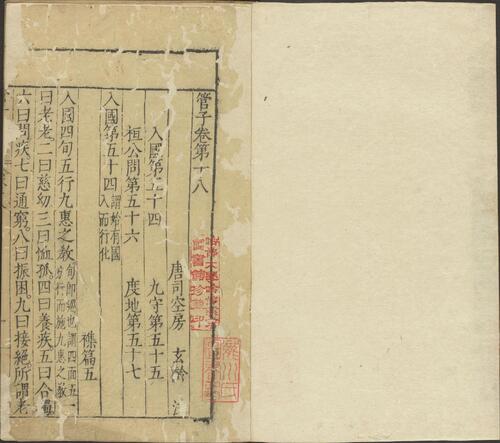 管子卷第十八
唐司空房 玄齡 注
入國第五十四 九守第五十五
桓公問第五十六 度地第五十七
入國第五十四 謂始有國入而行化
襍篇五
入國四旬五行九惠之教 旬即巡也謂四面五方行而施九惠之教 一
曰老老二曰慈幼三曰恤孤四曰養疾五曰合獨
六曰問疾七曰通窮八曰振困九曰接絶所謂老